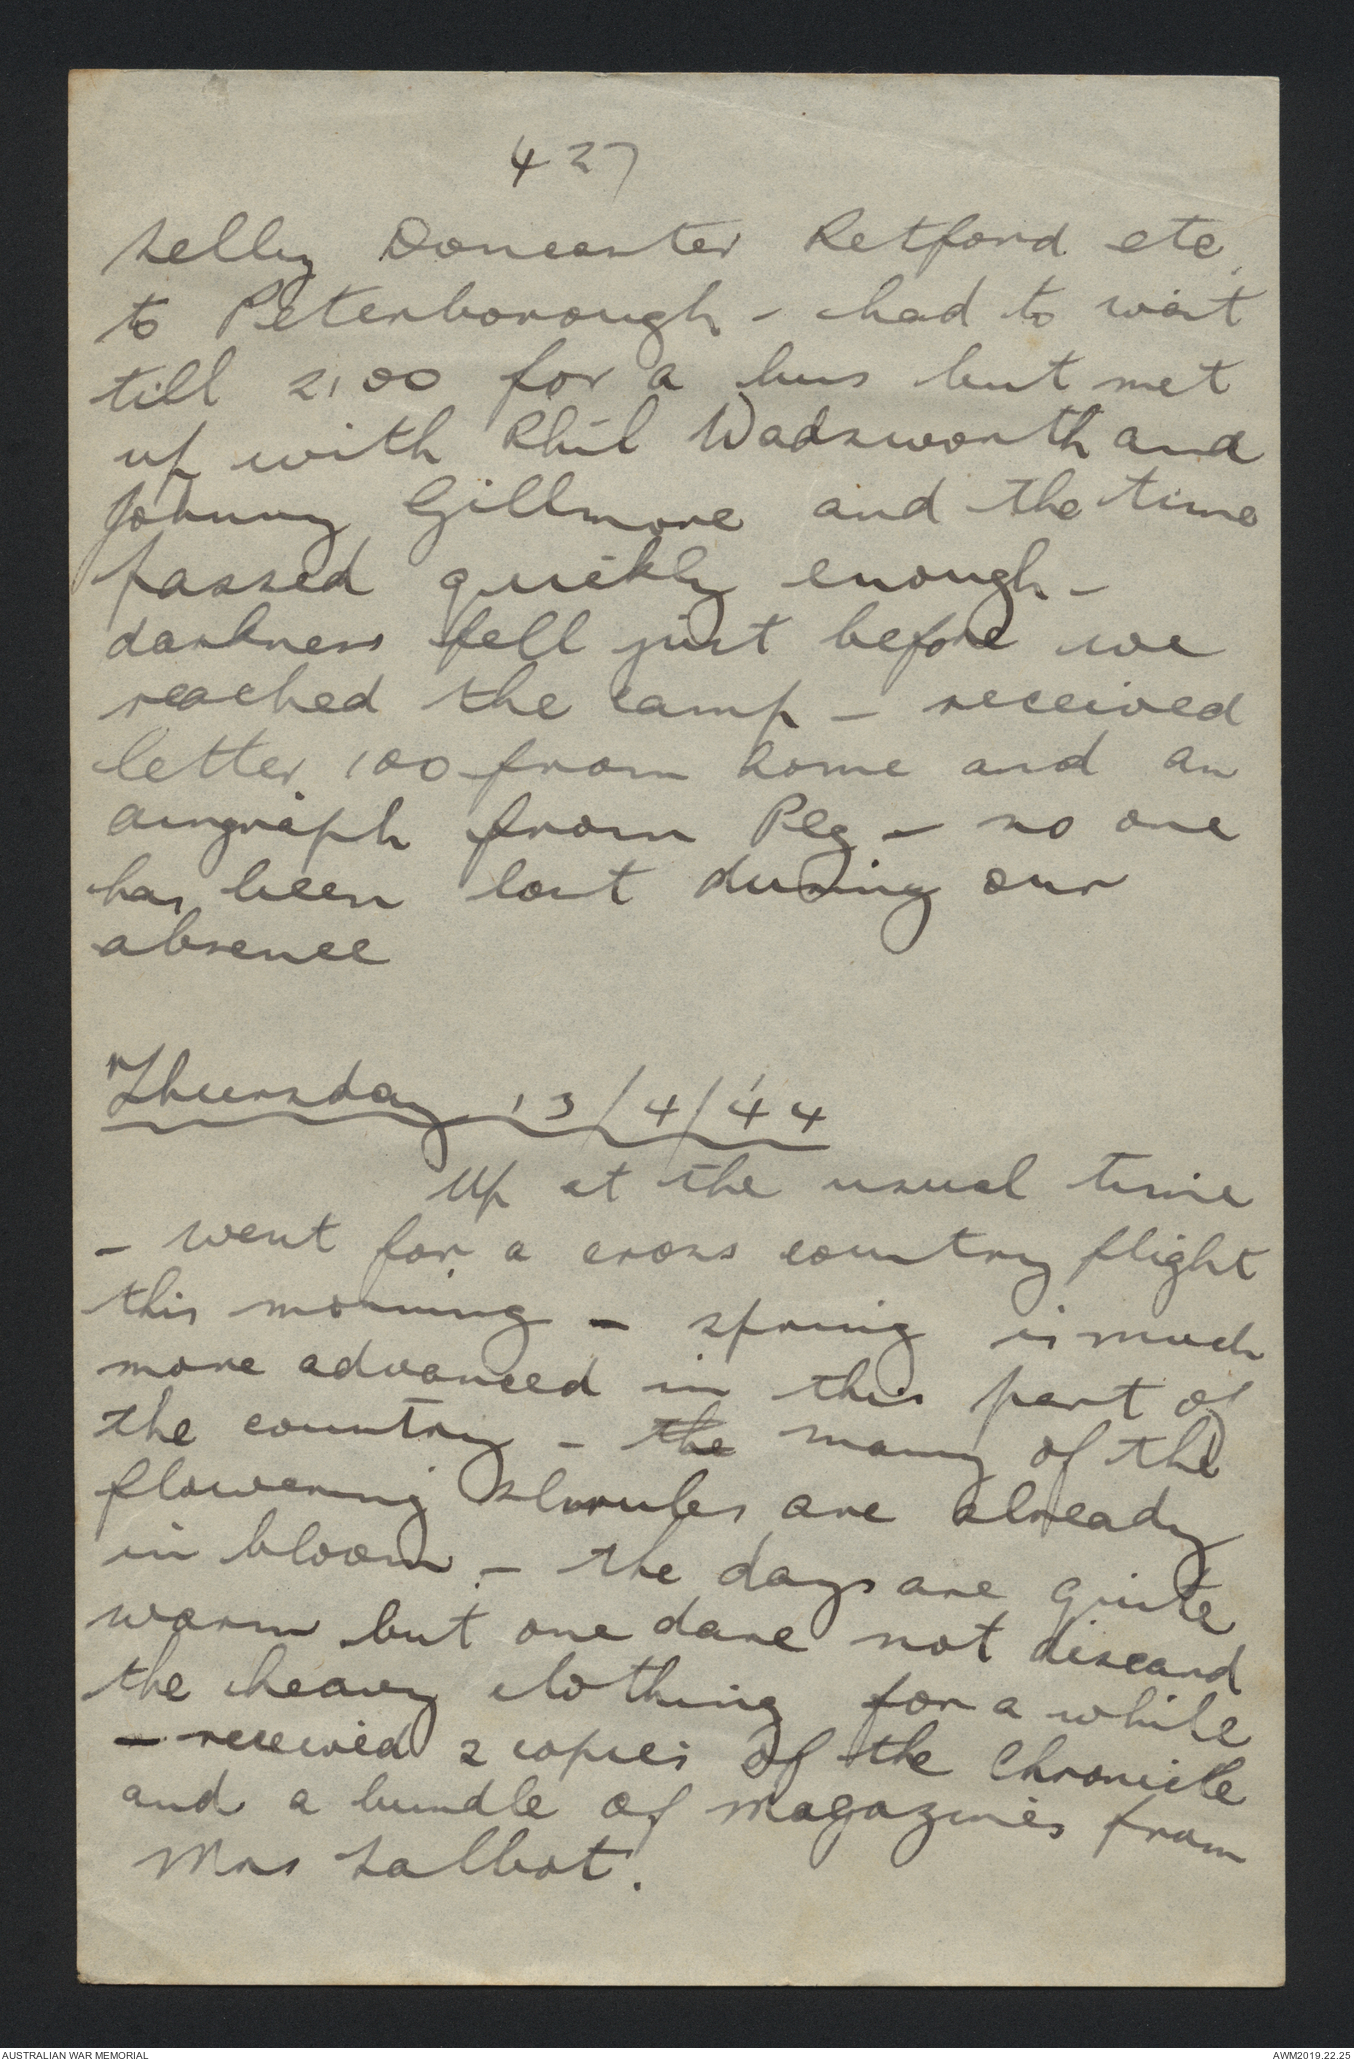 427
Selby Doncaster Retford etc.
to Peterborough - had to wait
till 2,00 for a bus but met
up with Phil Wadsworth and
Johnny Gillmore and the time
passed quickly enough -
darkness fell just before we
reached the camp - received
letter 100 from home and an
airgraph from Peg - no one
has been lost during our
absence
Thursday 13/4/'44
Up at the usual time
- went for a cross country flight
this morning - spring is much
more advanced in this part of
the country - the many of the
flowering shrubs are already
in bloom - the days are quite
warm but one dare not discard
the heavy clothing for a while
- received 2 copies of the Chronicle
and a bundle of magazines from
Mrs Talbot.
AUSTRALIAN WAR MEMORIAL
AWM2019.22.25